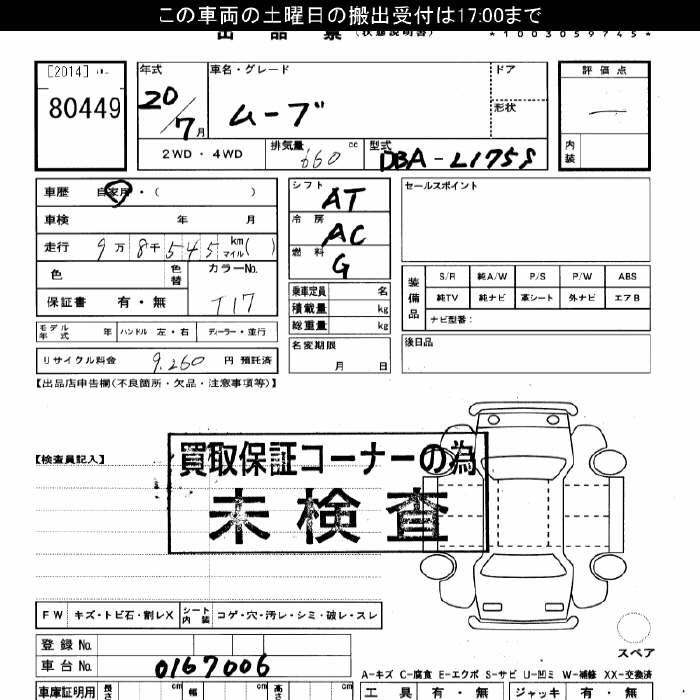 この車両の土曜日の搬出受付は17:00まで
出品票 (状態説明書) *1003059745*
[2014]
80449
年式 車名・グレード ドア 評価点
20/7月 ムーブ 形状 —
2WD・4WD 排気量 660 cc 型式 DBA-L175S 内装
車歴 自家用・( )
車検 年 月
走行 9万8千545 km マイル( )
色 色替 カラーNo.
保証書 有・無 T17
モデル年式 年 ハンドル 左・右 ディーラー・並行
リサイクル料金 9.260 円 預託済
シフト AT
冷房 AC
燃料 G
乗車定員 名
積載量 kg
総重量 kg
名変期限
月 日
セールスポイント
装備品 S/R 純A/W P/S P/W ABS
純TV 純ナビ 革シート 外ナビ エアB
ナビ型番:
後日品
【出品店申告欄(不良箇所・欠品・注意事項等)】
【検査員記入】
買取保証コーナーの為
未検査
FW キズ・トビ石・割レX シート内装 コゲ・穴・汚レ・シミ・破レ・スレ
登録No.
車台No. 0167006
スペア
A-キズ C-腐食 E-エクボ S-サビ U-凹ミ W-補修 XX-交換済
車庫証明用 長さ cm 幅 cm 高さ cm
工具 有・無 ジャッキ 有・無